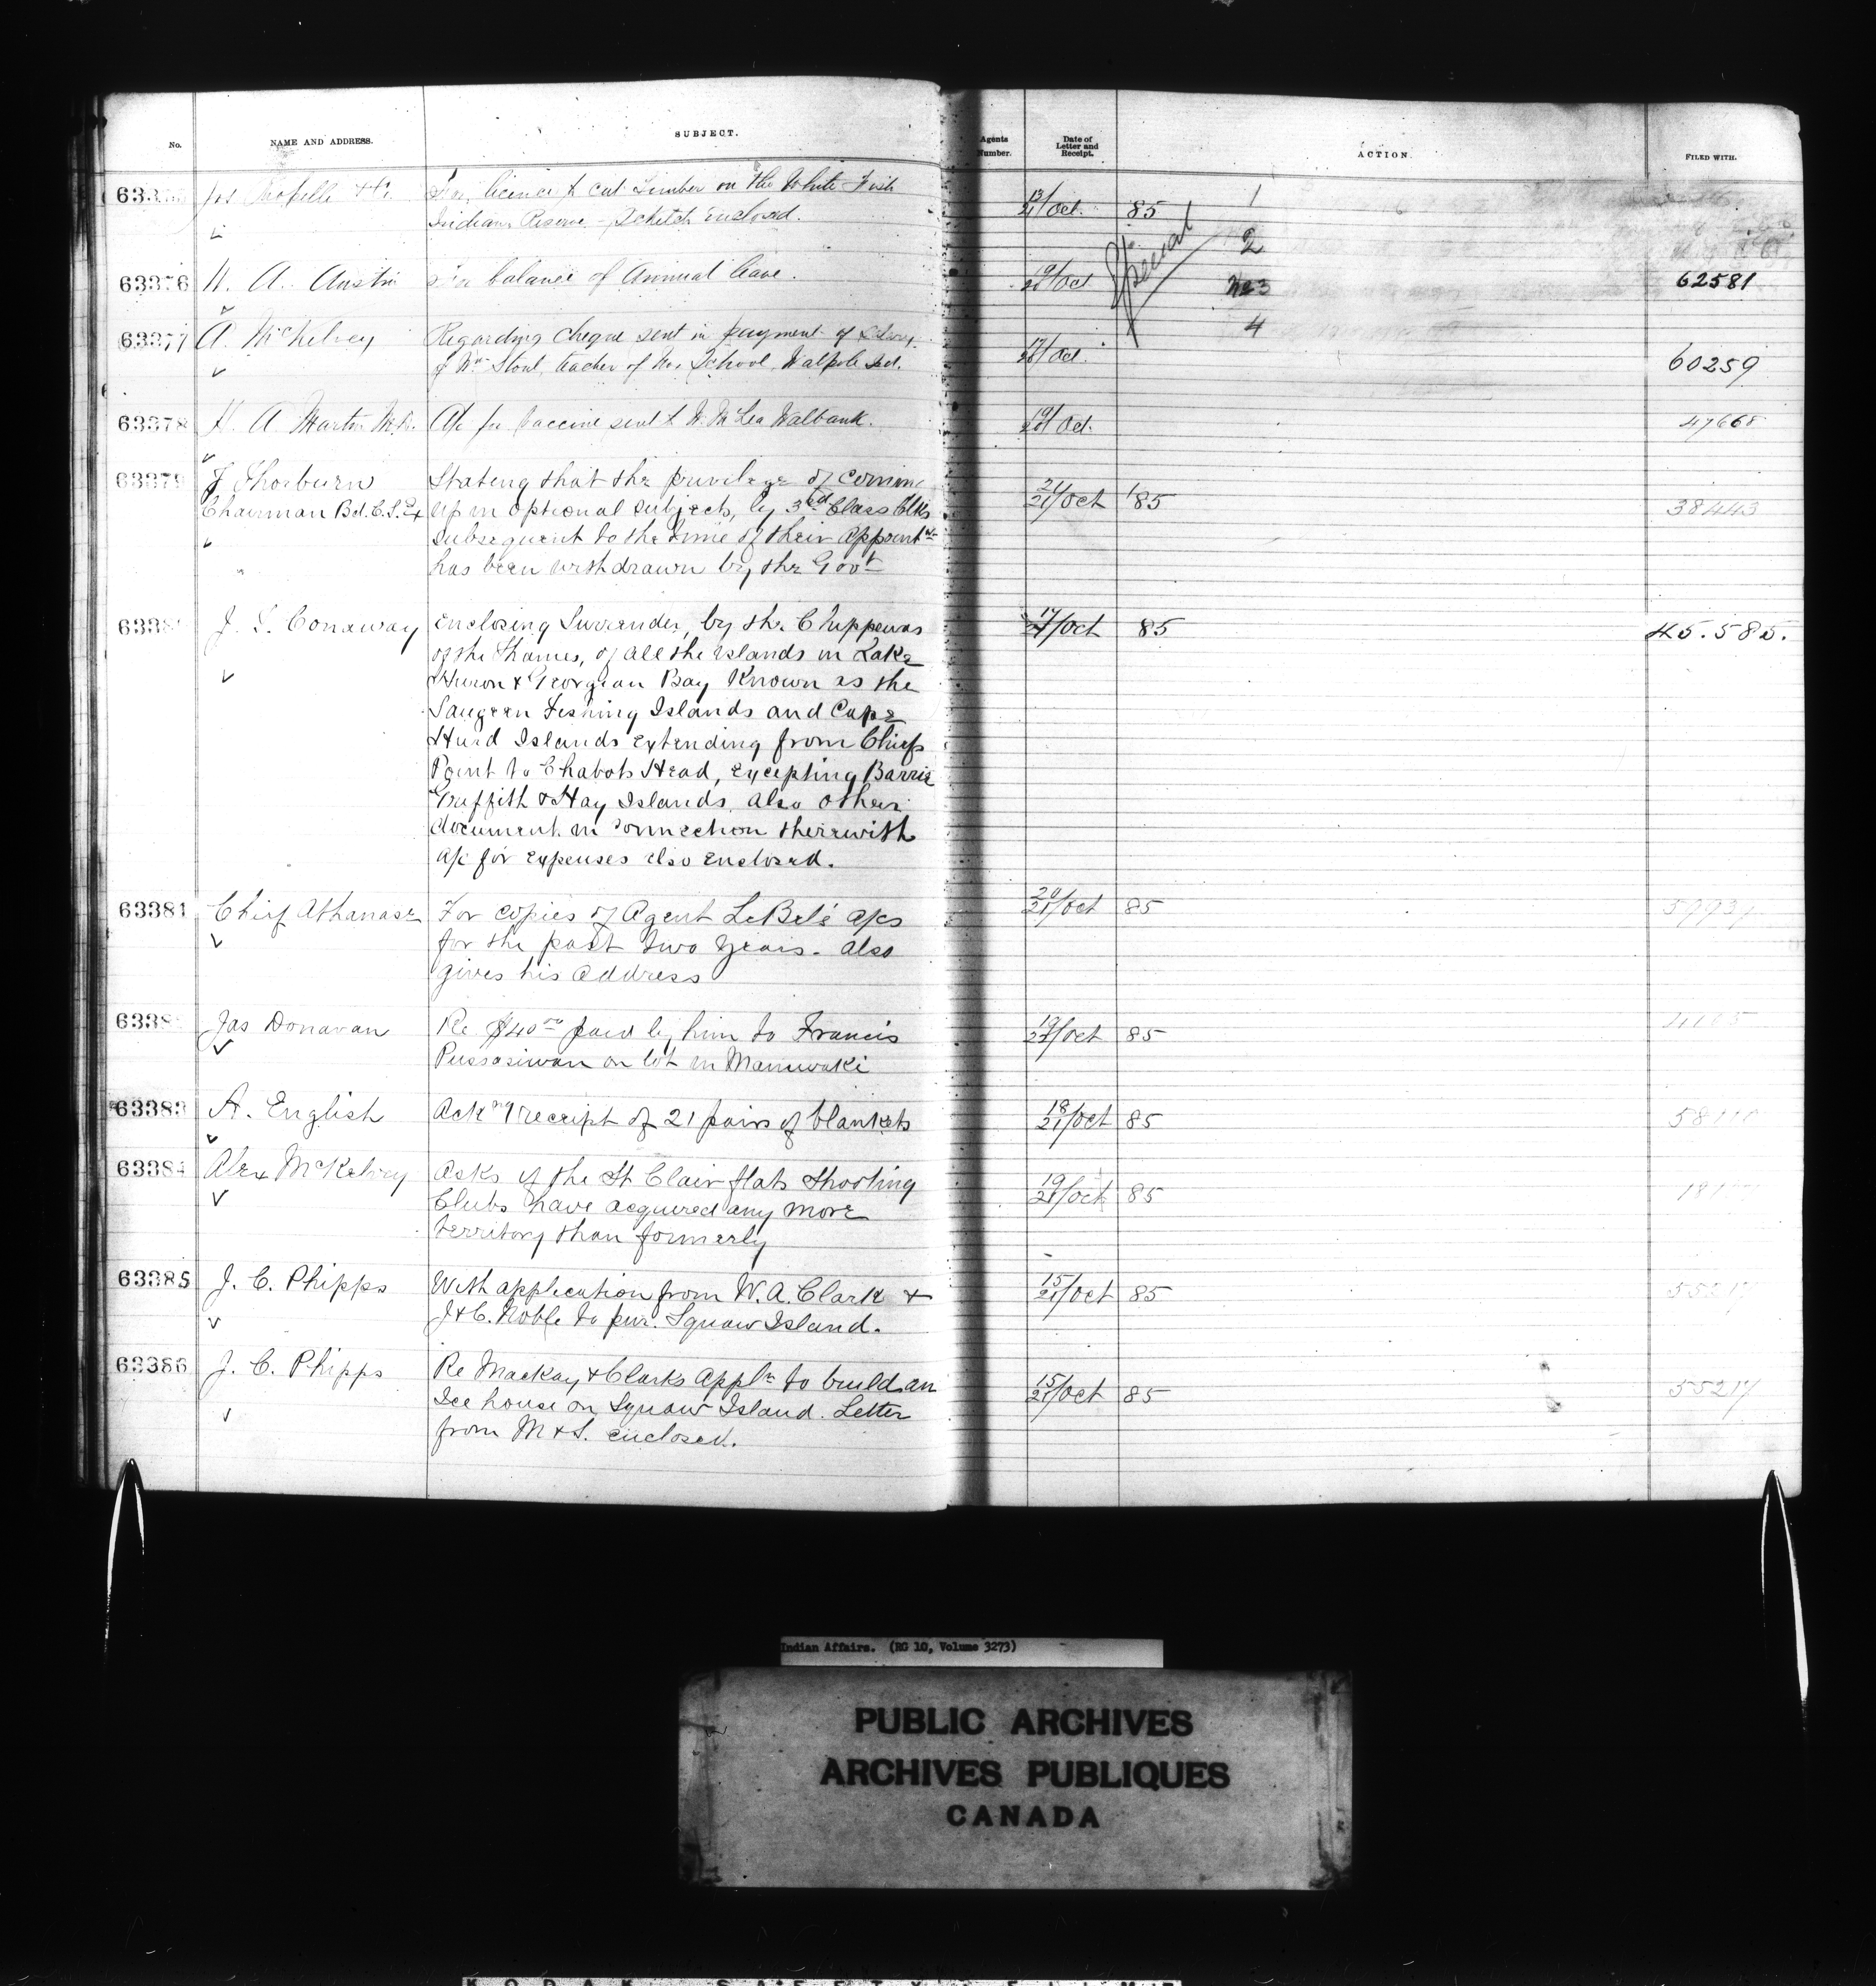 No. NAME AND ADDRESS. SUBJECT. Agents Number. Date of Letter and Receipt. ACTION. FILED WITH.
licence to cut Timber on the White Fish 13/21 Oct. 85 1
Indian Reserve - Sketch enclosed.
Special 2
63376 H. A. Austin For balance of Annual leave. 19/21 Oct No 3 62581
4
63377 A. McKelvey Regarding cheque sent in payment of
of Wm Stout, teacher of No. School, Walpole Isd. 17/21 Oct. 60259
63378 H. A. Martin M.D. A/c for Vaccine sent to W. McLea Walbank. 19/21 Oct. 47668
63379 J Thorburn Stating that the privilege of coming 21/21 Oct '85
Chairman Bd. C. S. Ex up in optional subjects, by 3rd Class Clks 38443
subsequent to the time of their appointmt
has been withdrawn by the Govt
J. S. Conaway Enclosing Surrender, by the Chippewas 17/21 Oct 85 45.585.
of the Thames, of all the Islands in Lake
Huron & Georgian Bay known as the
Saugeen Fishing Islands and Cape
Hurd Islands extending from Chiefs
Point to Chabots Head, excepting Barrie
Griffith & Hay Islands, also other
document in connection therewith
A/c for expenses also enclosed.
63381 Chief Athanase For copies of Agent LeBel's a/cs 20/21 Oct 85
for the past two years. Also
gives his address
Jas Donavan Re $40 00 paid by him to Francis 19/21 Oct 85
Pussasiwan on lot in Maniwaki
63383 A. English Ackng receipt of 21 pairs of blankets 18/21 Oct 85
63384 Alex McKelvey Asks if the St Clair flats Shooting 19/21 Oct 85
Clubs have acquired any more
territory than formerly
63385 J. C. Phipps With application from W. A. Clark & 15/21 Oct 85 55217
J & C. Noble to pur. Squaw Island.
63386 J. C. Phipps Re Mackay & Clarks Appln to build an 15/21 Oct 85 55217
Ice house on Squaw Island. Letter
from M & S. enclosed.
Indian Affairs. (RG 10, Volume 3273)
PUBLIC ARCHIVES
ARCHIVES PUBLIQUES
CANADA